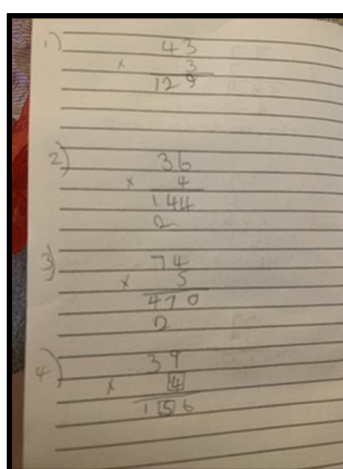 1) 43
× 3
129
2) 36
× 4
144
2
3) 74
× 5
470
2
4) 39
× 4
156